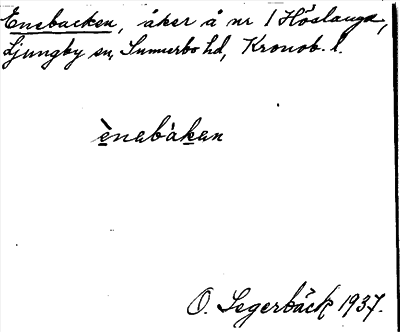 Enebacken, åker å nr 1 Höslanga,
Ljungby sn, Sunnerbo hd, Kronob. l.
ènabàkan
O. Segerbäck 1937.